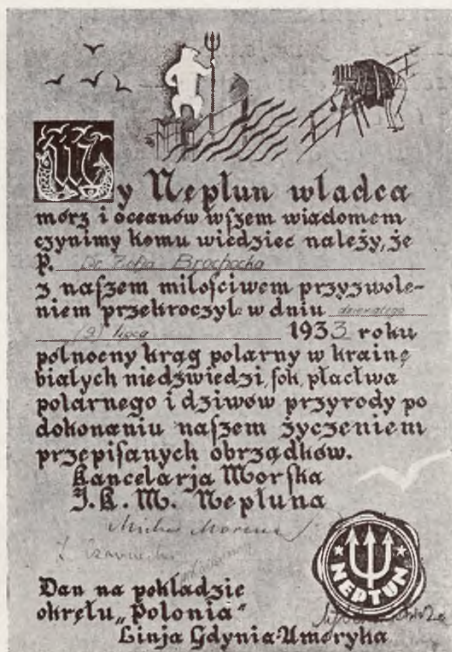 My Neptun władca
mórz i oceanów wszem wiadomem
czynimy komu wiedzieć należy, że
P. Dr. Zofia Brochocka
z naszem miłościwem przyzwole-
niem przekroczyła w dniu dziewiątego
(9) lipca 1933 roku
północny krąg polarny w krainę
białych niedźwiedzi, fok, ptactwa
polarnego i dziwów przyrody po
dokonaniu naszem życzeniem
przepisanych obrządków.
Kancelarja Morska
J. K. M. Neptuna
NEPTUN
Dan na pokładzie
okrętu „Polonia"
Linja Gdynia-Ameryka